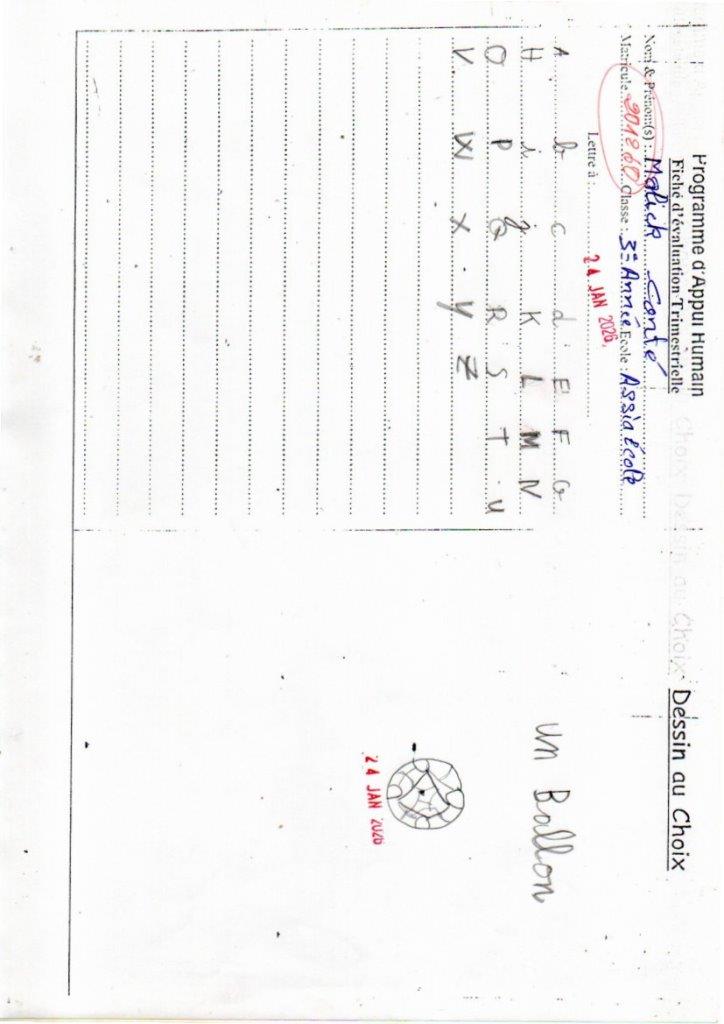 Programme d'Appui Humain
Fiche d'évaluation Trimestrielle
Nom & Prénom(s) : Malick Conté
Matricule 201860 Classe : 3e Année Ecole : Assia école
Lettre à :
24 JAN 2026
A b c d E F G
H i j K L M N
O P Q R S T u
V W X y Z
Choix Dessin au Choix Dessin au Choix
Un Ballon
24 JAN 2026